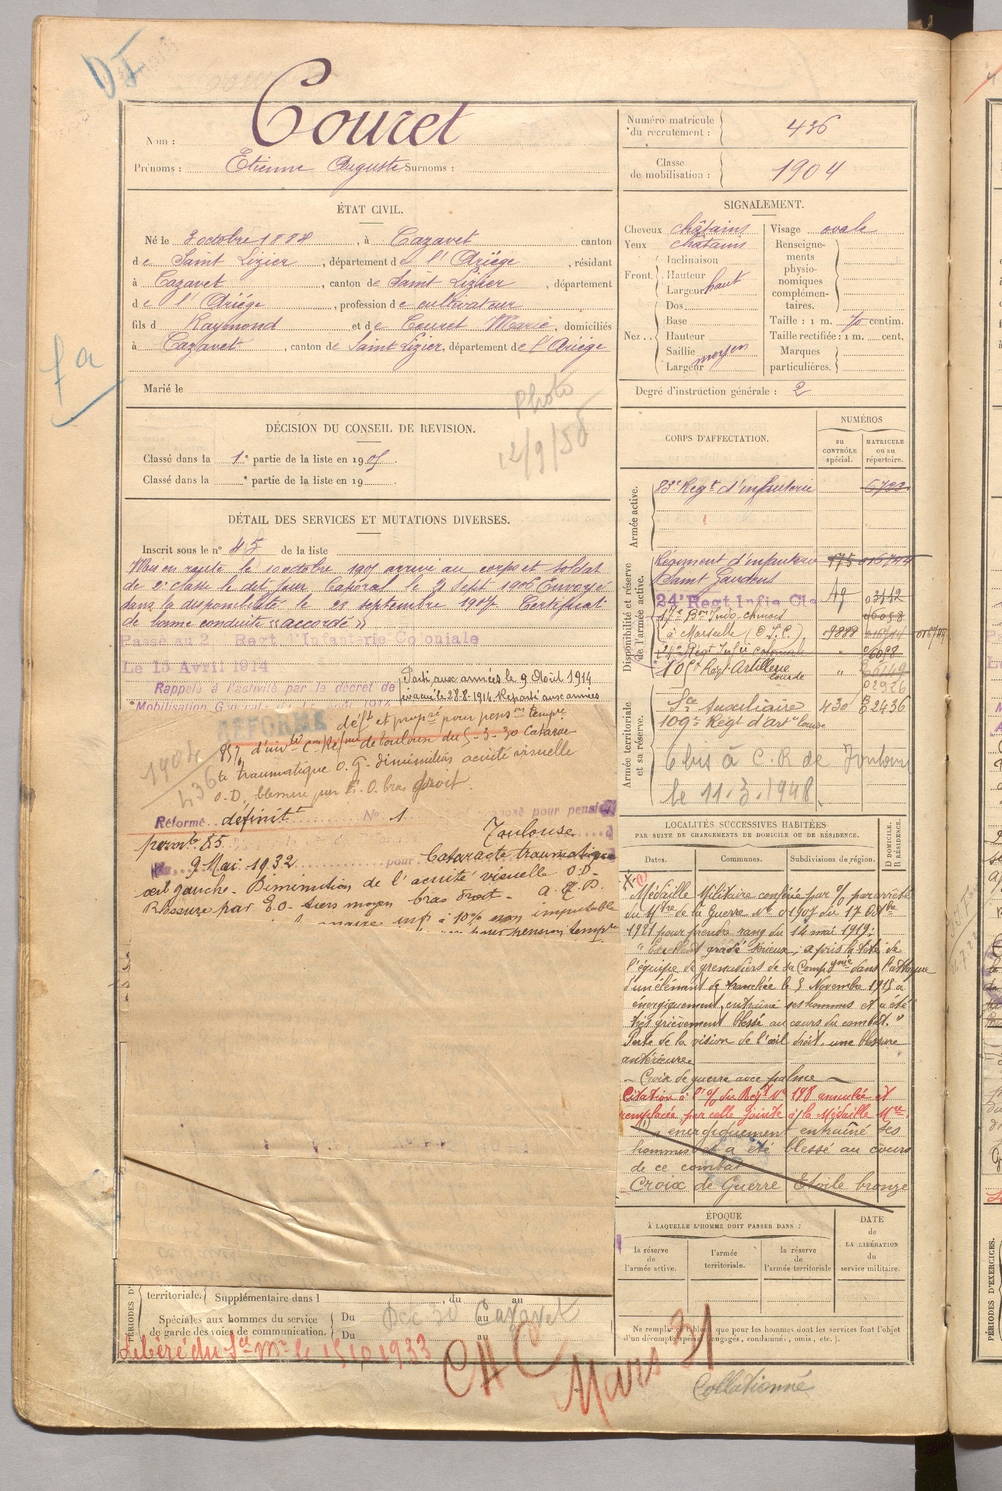 Nom : Couret
Prénoms : Etienne Auguste Surnoms :
Numéro matricule du recrutement : 436
Classe de mobilisation : 1904
ÉTAT CIVIL.
Né le 3 octobre 1884, à Cazavet canton
de Saint Lizier, département de l'Ariége, résidant
à Cazavet, canton de Saint-Lizier, département
de l'Ariége, profession de cultivateur
fils d Raymond et de Couret Marie, domiciliés
à Cazavet, canton de Saint Lizier, département de l'Ariége
Marié le
Photo
12/9/50
DÉCISION DU CONSEIL DE REVISION.
Classé dans la 1e partie de la liste en 1905.
Classé dans la e partie de la liste en 19
DÉTAIL DES SERVICES ET MUTATIONS DIVERSES.
Inscrit sous le n° 45 de la liste
Mis en route le 10 octobre 1905 arrivé au corps et soldat
de 2e classe le dit jour. Caporal le 21 Sept 1906 Envoyé
dans la disponibilité le 21 septembre 1907. Certificat
de bonne conduite "accordé"
Passé au 2 Regt d'Infanterie Coloniale
Le 15 Avril 1914
Rappelé à l'activité par la décret de
Mobilisation Générale du 1er août 1914
Parti aux armées le 9 Août 1914
évacué le 28.8.1914. Reparti aux armées
RÉFORMÉ déft et propé pour pension tempre
85% d'invté con Réfme de Toulouse du 5-3-30 Catarac
te traumatique O.G. diminution acuité visuelle
O.D. blessure par E.O. bras droit.
1904
436
Réformé définitt N° 1 proposé pour pension
permte 85 Toulouse
9 Mai 1932 pour Cataracte traumatique
œil gauche. Diminution de l'acuité visuelle O.D.
Blessure par E.O. tiers moyen bras droit. A.E.D.
inf à 10% non imputable
pour pension tempre
territoriale. Supplémentaire dans l du au
Spéciales aux hommes du service de garde des voies de communication. Du au
Du au
Dec 30 Cazavet
Libéré du Sce Mre le 15 10 1933
CHC Mars 31
Collationné
SIGNALEMENT.
Cheveux châtains Visage ovale
Yeux châtains
Front Inclinaison
Hauteur
Largeur haut
Nez Dos
Base
Hauteur
Saillie
Largeur moyen
Renseignements physionomiques complémentaires.
Taille : 1 m. 70 centim.
Taille rectifiée : 1 m. cent.
Marques particulières.
Degré d'instruction générale : 2
CORPS D'AFFECTATION.
NUMÉROS
au CONTRÔLE spécial.
MATRICULE ou au répertoire.
Armée active.
83e Régt d'infanterie 6723
Disponibilité et réserve de l'armée active.
Régiment d'infanterie 975 016744
Saint Gaudens
24e Regt Infie Cle 49 03442
17e Bon Indo-chinois
à Marseille (D.I.C.) 9888
24e Régt Infie coloniale
10e Régt Artillerie lourde
Armée territoriale et sa réserve.
Sce Auxiliaire 430 E2436
109e Régt d'art lourde
6 bis à C.R de Toulouse
le 11.3.1948.
LOCALITÉS SUCCESSIVES HABITÉES
PAR SUITE DE CHANGEMENTS DE DOMICILE OU DE RÉSIDENCE.
Dates. Communes. Subdivisions de région. D DOMICILE. R RÉSIDENCE.
Médaille Militaire conférée par % par arrêté
du Mtre de la Guerre No 01907 du 17 8bre
1921 pour prendre rang du 14 mai 1919:
"Excellent gradé sérieux; a pris la tête de
l'équipe de grenadiers de sa Compagnie dans l'attaque
d'un élément de tranchée le 5 Novembre 1915 a
énergiquement entraîné ses hommes et a été
très grièvement blessé au cours du combat."
Perte de la vision de l'œil droit, une blessure
antérieure.
Croix de guerre avec palme
Citation à l'% du Régt No 198 annulée et
remplacée par celle jointe à la Médaille Mre
"a énergiquement entraîné ses
hommes et a été blessé au cours
de ce combat
Croix de Guerre Etoile bronze
ÉPOQUE
À LAQUELLE L'HOMME DOIT PASSER DANS :
la réserve de l'armée active.
l'armée territoriale.
la réserve de l'armée territoriale
DATE de LA LIBÉRATION du service militaire.
Ne remplir que pour les hommes dont les services font l'objet
d'un décompte (engagés, condamnés, omis, etc.).
PÉRIODES D'EXERCICES.